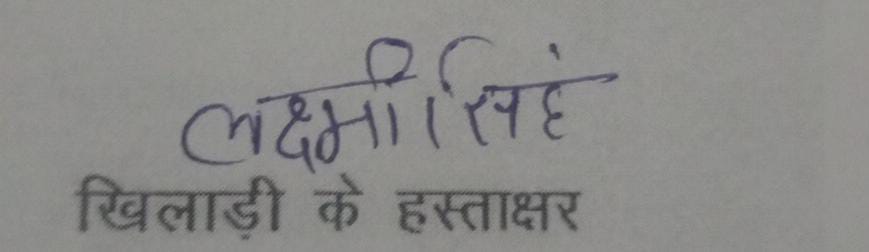 लक्ष्मी सिहं
खिलाड़ी के हस्ताक्षर